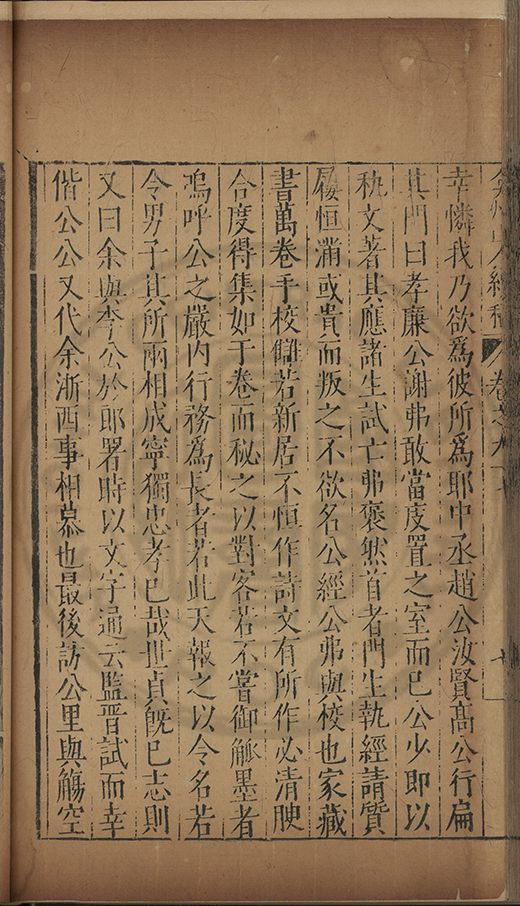 幸憐我乃欲為彼所為耶中丞趙公汝賢高公行扁
其門曰孝廉公謝弗敢當庋置之室而已公少即以
秇文著其應諸生試亡弗褎然首者門生執經請質
屨恒滿或貴而叛之不欲名公經公弗與校也家藏
書萬卷手校讎若新居不恒作詩文有所作必清腴
合度得集如干卷而秘之以對客若不嘗御觚墨者
嗚呼公之嚴內行務為長者若此天報之以令名若
令男子其所兩相成寧獨忠孝已哉世貞既已志則
又曰余與李公於郎署時以文字通云監晉試而幸
偕公公又代余浙西事相慕也最後訪公里與觴空